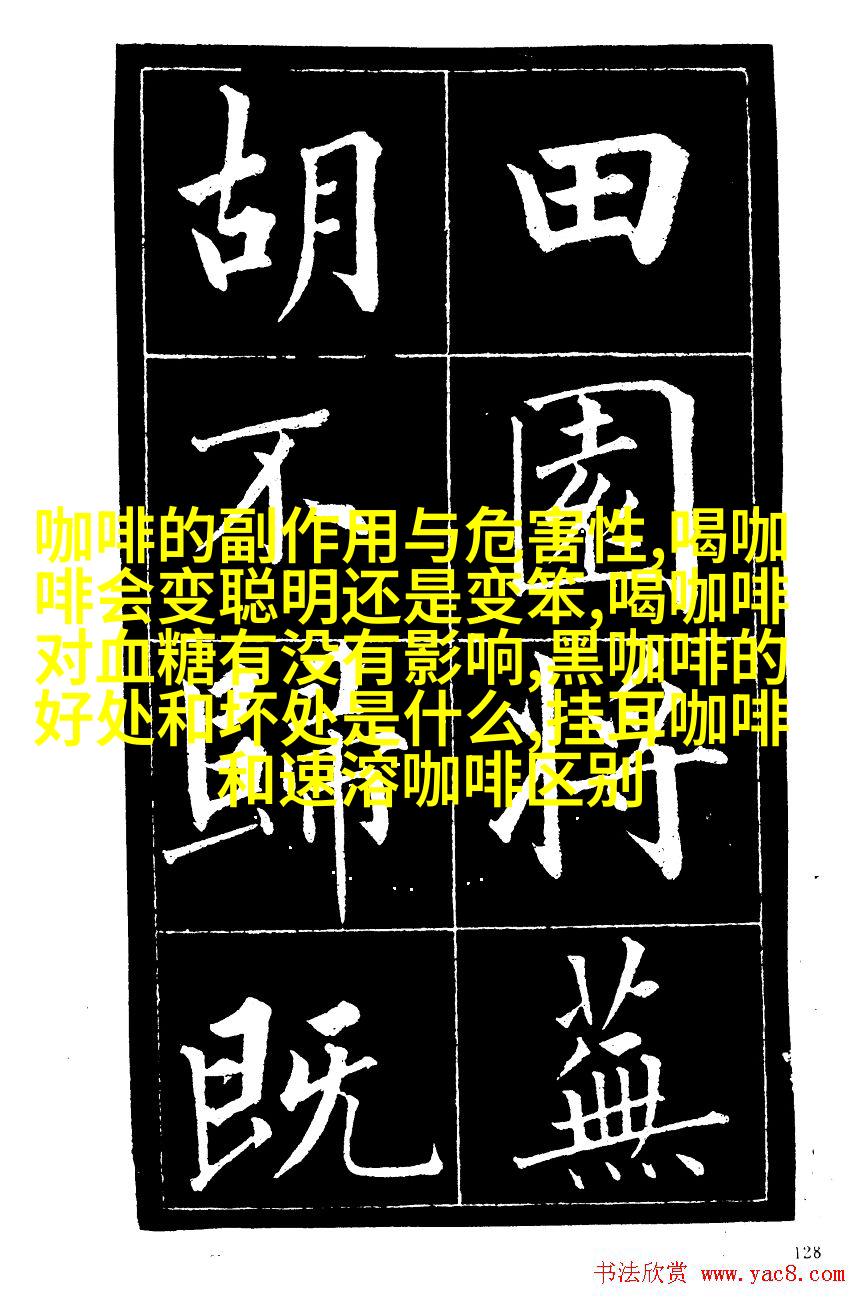 田園将蕪
胡不歸既
咖啡的副作用与危害性,喝咖
啡会变聪明还是变笨,喝咖啡
对血糖有没有影响,黑咖啡的
好处和坏处是什么,挂耳咖啡
和速溶咖啡区别
128
书法欣赏 www.yac8.com